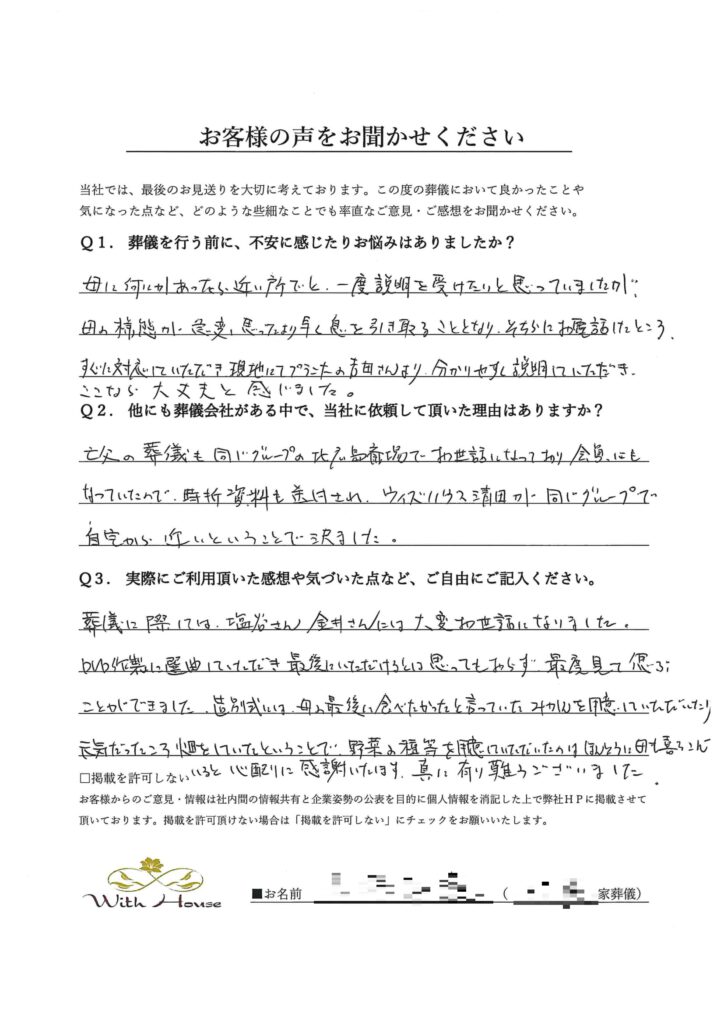 お客様の声をお聞かせください
当社では、最後のお見送りを大切に考えております。この度の葬儀において良かったことや
気になった点など、どのような些細なことでも率直なご意見・ご感想をお聞かせください。
Q1. 葬儀を行う前に、不安に感じたりお悩みはありましたか？
母に何かあったら近い所でと、一度説明を受けたいと思っていましたが、
母の様態が急変し思ったより早く息を引き取ることとなり、そちらにお電話したところ、
すぐに対応していただき現地にてプランナーの吉田さんより、分かりやすく説明していただき、
ここなら大丈夫と感じました。
Q2. 他にも葬儀会社がある中で、当社に依頼して頂いた理由はありますか？
亡父の葬儀も同じグループの北広島斎場でお世話になっており会員にも
なっていたので、時折資料も送付され、ウィズハウス清田が同じグループで
自宅から近いということで決ました。
Q3. 実際にご利用頂いた感想や気づいた点など、ご自由にご記入ください。
葬儀に際しては、塩谷さん、金井さんには大変お世話になりました。
DVD作製に選曲していただき最後にいただけるとは思ってもおらず、最度見て偲ぶ
ことができました。告別式には、母の最後に食べたかったと言っていたみかんを用意していただいたり
元気だったころ畑をしていたということで、野菜の種等を用意していただいたのはほんとうに母も喜こんで
いると心配りに感謝いたします。真に有り難うございました
□掲載を許可しない
お客様からのご意見・情報は社内間の情報共有と企業姿勢の公表を目的に個人情報を消記した上で弊社HPに掲載させて
頂いております。掲載を許可頂けない場合は「掲載を許可しない」にチェックをお願いいたします。
With House
■お名前 （ 家葬儀）